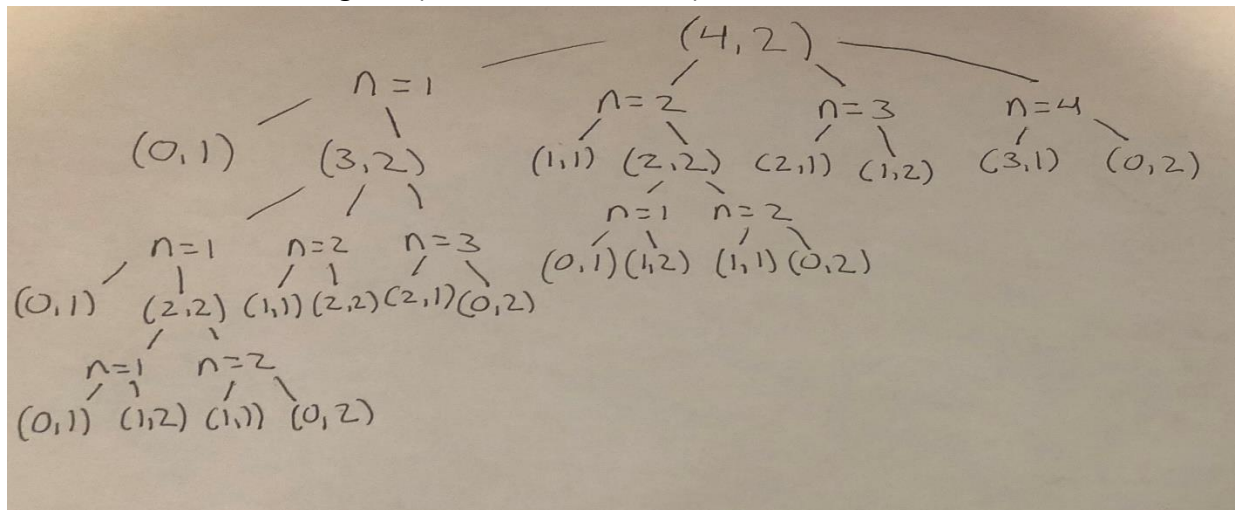 (4,2)
n=1 n=2 n=3 n=4
(0,1) (3,2) (1,1) (2,2) (2,1) (1,2) (3,1) (0,2)
n=1 n=2 n=3 n=1 n=2
(0,1) (2,2) (1,1) (2,2) (2,1) (0,2) (0,1) (1,2) (1,1) (0,2)
n=1 n=2
(0,1) (1,2) (1,1) (0,2)